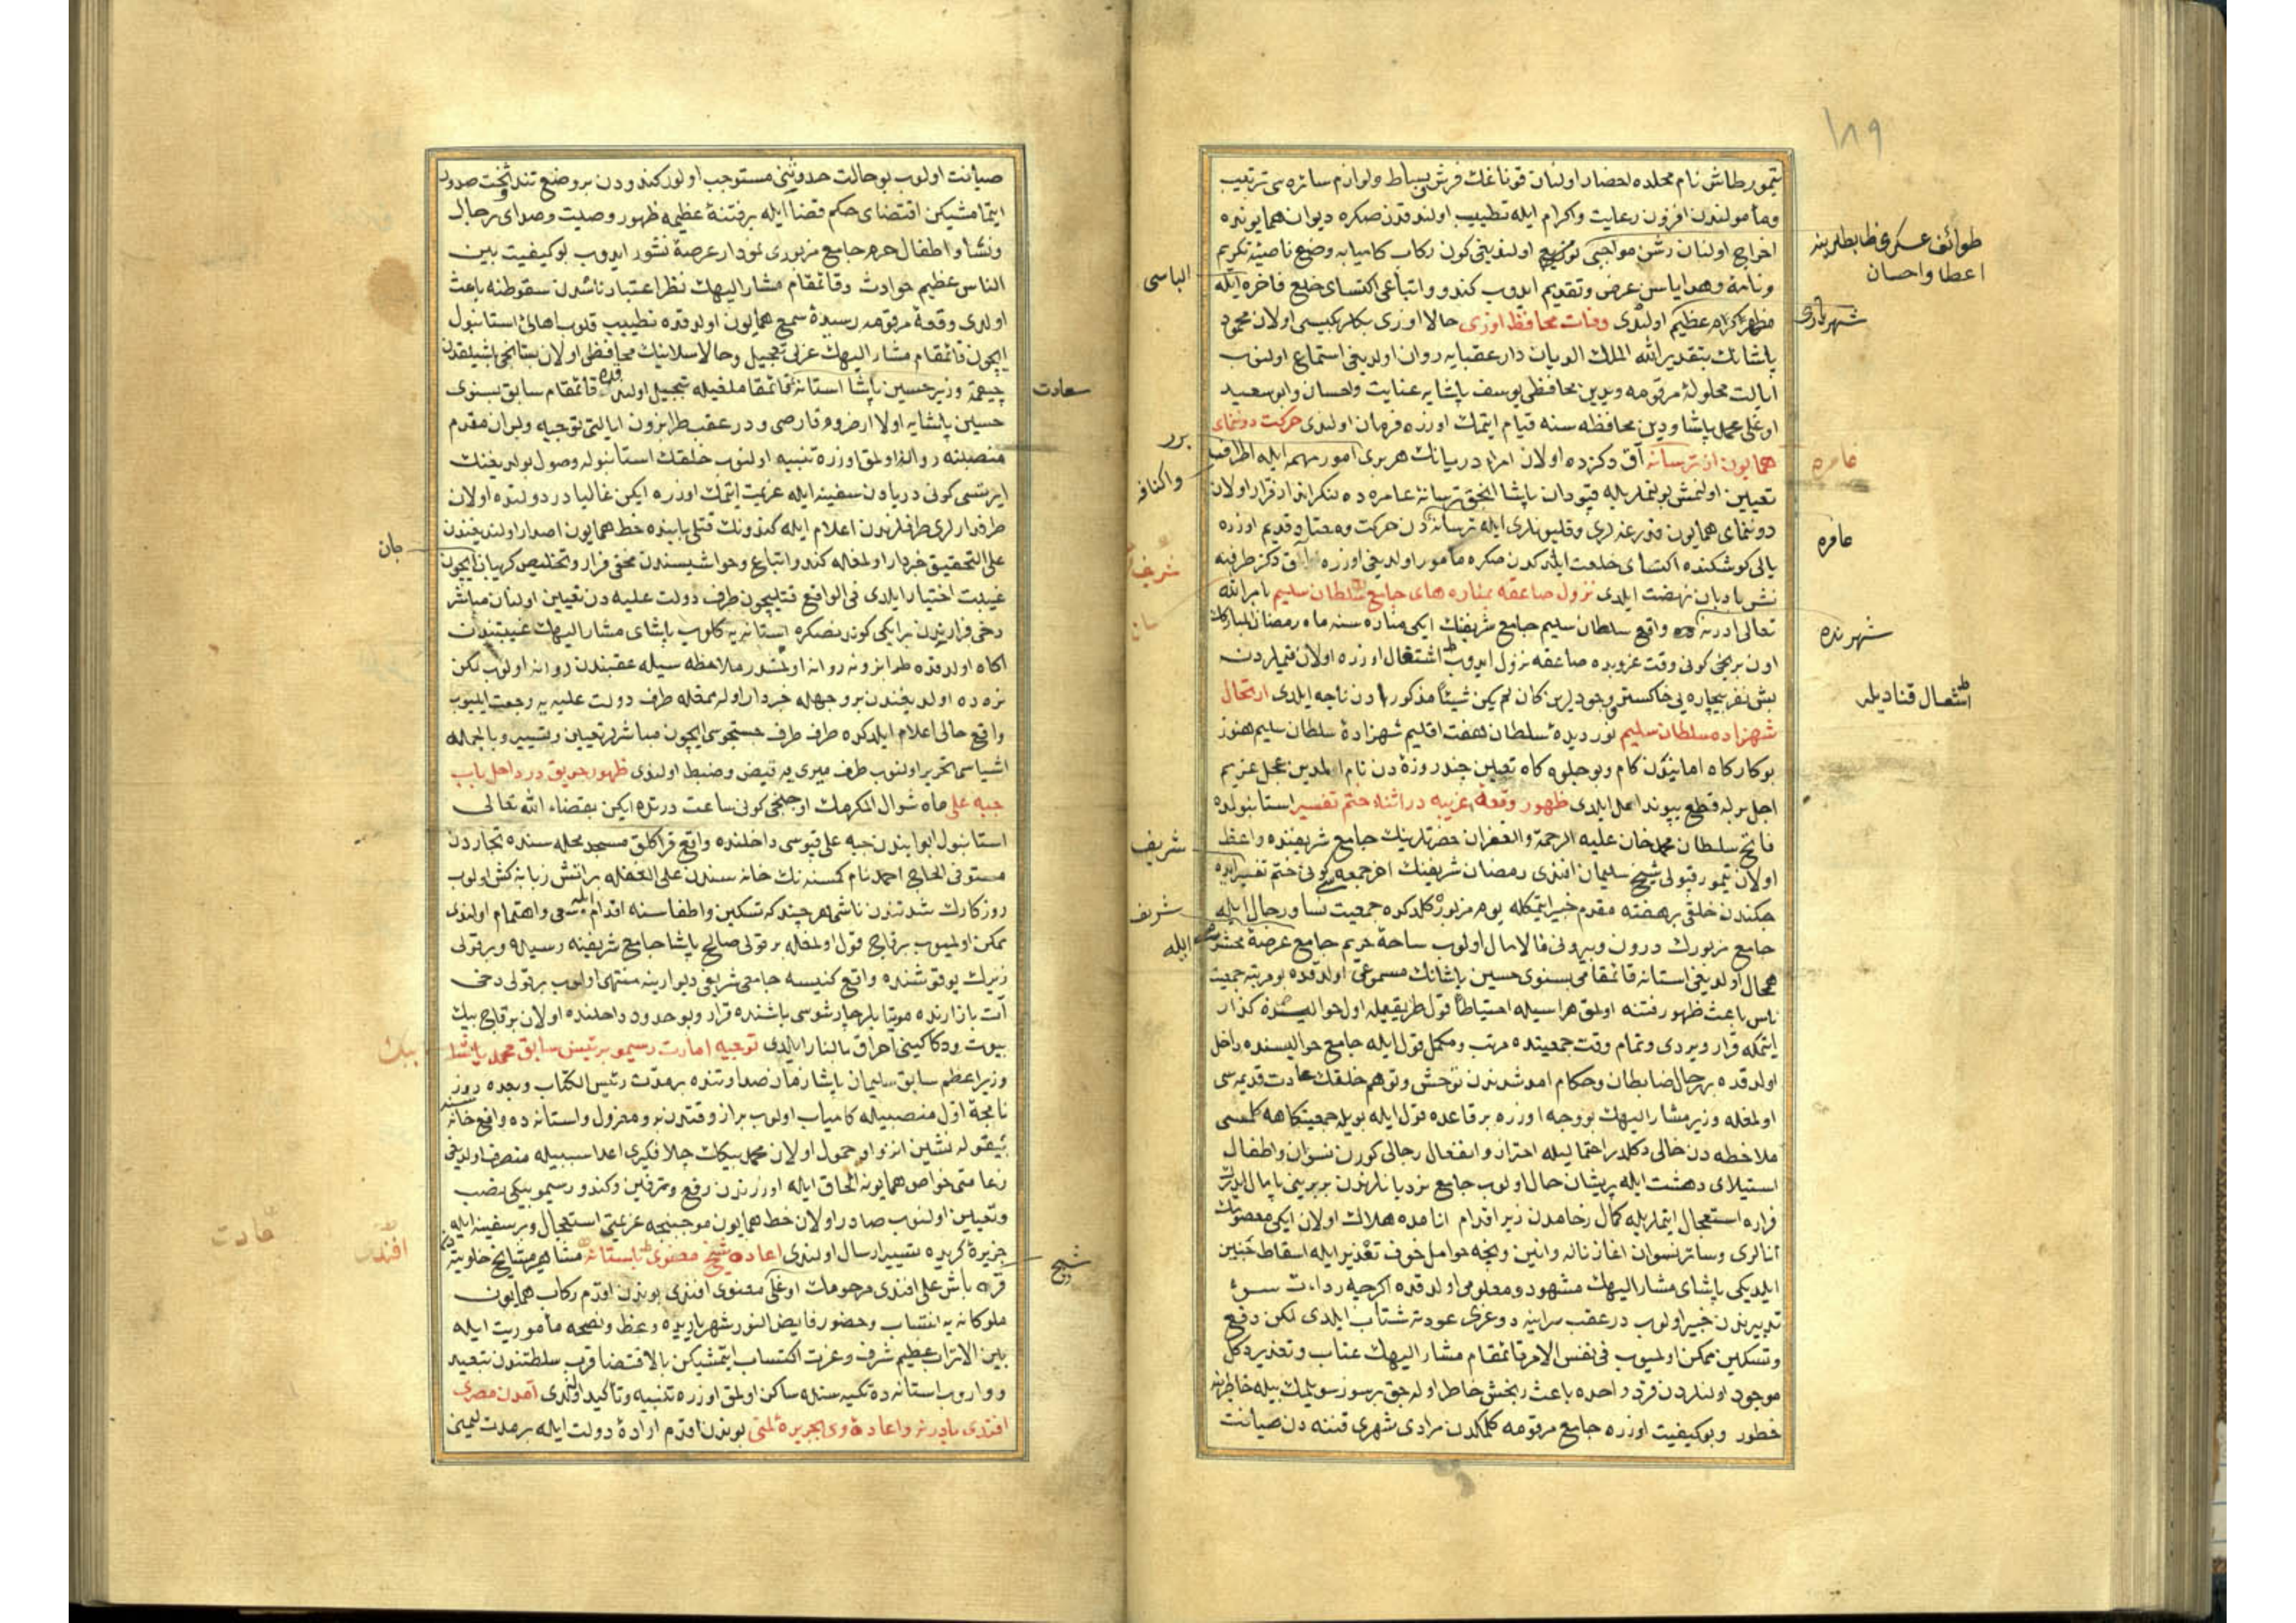 ١٨٩
تيمورطاش نام محلده احضار اولنان قوناغك فرش بساط ولوازم سائره سى ترتيب
ومأمولندن افزون رعايت واكرام ايله تطييب اولندقدن صكره ديوان همايونده
اخراج اولنان رشن مواجبى توزيع اولنديغى كون ركاب كاميابه وضع ناصيۀ تكريم
ونامه وهداياسن عرض وتقديم ايدوب كندو واتباعى اكتساى خلع فاخره ايله
مظهر اكرام عظيم اولندى وفات محافظ اوزى حالا اوزى بكلربكيسى اولان محمود
پاشانك بتقدير الله الملك الديان دار عقبايه روان اولديغى استماع اولنوب
ايالت محلولۀ مرقومه ويدين محافظى يوسف پاشايه عنايت واحسان وابو سعيد
اوغلى محمد پاشا ودين محافظه سنه قيام ايتمك اوزره فرمان اولندى حركت دونماى
همايون از ترسانه آق دكزده اولان امرا دريانك هربرى امور مهمه ايله اطرافه
تعيين اولنمش بولنملريله قپودان پاشا انجق ترسانۀ عامره ده لنكرانداز قرار اولان
دونماى همايون قدرغه لرى وقليونلرى ايله ترسانه دن حركت ومعتاد قديم اوزره
يالى كوشكنده اكتساى خلعت ايلدكدن صكره مأمور اولديغى اوزره آق دكز طرفنه
نشر بادبان نهضت ايلدى نزول صاعقه بمناره هاى جامع سلطان سليم بامر الله
تعالى ادرنه ده واقع سلطان سليم جامع شريفنك ايكى مناره سنه ماه رمضان المباركك
اون برنجى كونى وقت غروبده صاعقه نزول ايدوب اشتغال اوزره اولان قيملردن
بش نفر بيچاره يى خاكستر وجودلرين كان لم يكن شيئا مذكورا دن ناچه ايلدى ارتحال
شهزاده سلطان سليم نور ديدۀ سلطان هفت اقليم شهزادۀ سلطان سليم هنوز
بو كاركاه امانيكون كام وبو جلوه كاه تعين چند روزه دن نام المدين عجل عزيم
اجل برله قطع پيوند امل ايلدى ظهور وقعۀ غريبه در اثناء ختم تفسير استانبولده
فاتح سلطان محمد خان عليه الرحمة والغفران حضرتلرينك جامع شريفنده واعظ
اولان تيمور قپولى شيخ سليمان افندى رمضان شريفنك اخر جمعه سى كونى ختم تفسير ايده
جكندن خلقى برهفته مقدم خبير ايتمكله يوم مزبور كلدكده جمعيت نسا ورجال ايله
جامع مزبورك درون وبيرونى مالامال اولوب ساحۀ حريم جامع عرصۀ محشر
همحال اولديغى استانه قائمقامى بسنوى حسين پاشانك مسموعى اولدقده بو مرتبه جمعيت
ناس باعث ظهور فتنه اولمق هراسيله احتياطا قول طريقيله اول حواليده كذار
ايتمكه قرار ويردى وتمام وقت جمعيتده مرتب ومكمل قول ايله جامع حواليسنده داخل
اولدقده بهر حال ضابطان وحكام امد شدندن توحش وتوهم خلقك عادت قديمه سى
اولمغله وزير مشار اليهك بو وجه اوزره بر قاعده قول ايله بويله جمعيتكاهه كلمسى
ملاحظه دن خالى دكلدر احتماليله احتراز وانفعال رجالى كورن نسوان واطفال
استيلاى دهشت ايله پريشان حال اولوب جامع نردبانلرندن بربرينى پامال ايدرك
فراره استعجال ايتملريله كمال زحامدن زير اقدام انامده هلاك اولان ايكى معصومك
انالرى وسائر نسوان اغاز ناله وانين ونيجه حوامل خوف تعذير ايله اسقاط جنين
ايلديكى پاشاى مشار اليهك مشهود ومعلومى اولدقده اكرچه رداءت سوء
تدبيرندن خبير اولوب در عقب سراينه دوغرى عودته شتاب ايلدى لكن رفع
وتسكين ممكن اولميوب فى نفس الامر قائمقام مشار اليهك عتاب وتعذيرد كل
موجود اولنلردن فرد واحده باعث رنجش خاطر اوله جق برسوز سويلمك بيله خاطرينه
خطور وبو كيفيت اوزره جامع مرقومه كلمكدن مرادى شهرى فتنه دن صيانت
طوائف عسكرى ضابطلرينه
اعطا واحسان
شهريارى
عامره
عامره
شهرنده
اشعال قناديله
الباسى
برر
واكنافه
شريف
شريف
شريف
ايله
صيانت اولوب بو حالت حدوثنى مستوجب اولور كندودن بر وضع تند وسخت صدور
ايتمامشيكن اقتضاى حكم قضا ايله برفتنۀ عظيمه ظهور وصيت وصداى رجال
ونسا واطفال حرم جامع مزبورى نمودار عرصۀ نشور ايدوب بو كيفيت بين
الناس عظيم حوادث وقائمقام مشار اليهك نظر اعتبار ناسدن سقوطنه باعث
اولدى وقعۀ مرقومه رسيدۀ سمع همايون اولدقده تطييب قلوب اهالئ استانبول
ايچون قائمقام مشار اليهك عزلى تعجيل وحالا سلانيك محافظى اولان بستانجى باشيلقدن
چيقمه وزير حسين پاشا استانه قائمقاملغيله تبجيل اولندقده قائمقام سابق بسنوى
حسين پاشايه اولا ارضروم قارصى ودر عقب طرابزون ايالتى توجيه وبر ان مقدم
منصبنه روانه اولمق اوزره تنبيه اولنوب خلقك استانبوله وصول بولديغنك
ايرتسى كونى دريادن سفينه ايله عزيمت ايتمك اوزره ايكن غالبا در دولتده اولان
طرفدارلرى طرفلرندن اعلام ايله كندونك قتلى بابنده خط همايون اصدار اولنديغندن
على التحقيق خبردار اولمغله كندو اتباع وحواشيسندن مخفى فرار وتخليص كريبان ايچون
غيبت اختيار ايلدى فى الواقع قتليچون طرف دولت عليه دن تعيين اولنان مباشر
دخى فرارندن بر ايكى كوندنصكره استانه يه كلوب پاشاى مشار اليهك غيبتندن
اكاه اولدقده طرابزونه روانه اولمشدر ملاحظه سيله عقبندن روانه اولوب لكن
نره ده اولديغندن بر وجهله خبردار اوله مغله طرف دولت عليه يه رجعت ايليوب
واقع حالى اعلام ايلدكده طرف طرف جستجوسى ايچون مباشرلر تعيين وتسيير وبالجمله
اشياسى تحرير اولنوب طرف ميرى يه قبض وضبط اولندى ظهور حريق در داخل باب
جبه على ماه شوال المكرمك اوچنجى كونى ساعت درتده ايكن بقضاء الله تعالى
استانبول ابوابندن جبه على قپوسى داخلنده واقع قراكلق مسجد محله سنده تجاردن
مستوفى الحاج احمد نام كمسنه نك خانه سندن على الغفله بر اتش زبانه كش اولوب
روزكارك شدتندن ناشى هر چند كه تسكين واطفاسنه اقدام ايله سعى واهتمام اولندى
ممكن اولميوب برقاچ قول اولمغله بر قولى صالح پاشا جامع شريفنه رسيده وبر قولى
زيرك يوقوشنده واقع كنيسه جامع شريفى ديوارينه منتهى اولوب بر قولى دخى
آت بازارنده موتابلر چارشوسى باشنده قرار وبو حدود داخلنده اولان برقاچ بيك
بيوت ودكاكينى احراق بالنار ايلدى توجيه امارت رسيمو برئيس سابق محمد پاشا
وزير اعظم سابق سليمان پاشا زمان صدارتنده برمدت رئيس الكتاب وبعده روز
نامجۀ اول منصبيله كامياب اولوب براز وقتدن برو معزول واستانه ده واقع خانه سنده
بيغوله نشين انزوا وخمول اولان محمد بيكك جلا فكرى اعدا سببيله متصرف اولديغى
زعامتى خواص همايونه الحاق ايله اوزرندن رفع وترقين وكندو رسيمو بيكى نصب
وتعيين اولنوب صادر اولان خط همايون موجبنجه عزيمتى استعجال وبر سفينه ايله
جزيرۀ كريده تسيير ارسال اولندى اعادۀ شيخ مصرى باستانه مشاهير مشايخ خلوتيه
قره باش على افندى مرحومك اوغلى معنوى افندى بوندن اقدم ركاب همايون
ملوكانه يه انتساب وحضور فايض النور شهرياريده وعظ ونصحه مأموريت ايله
بين الاتراب عظيم شرف وعزت اكتساب ايتمشيكن بالاقتضا قرب سلطنتدن تبعيد
وواروب استانه ده تكيه سنده ساكن اولمق اوزره تنبيه وتأكيد اولندى آمدن مصرى
افندى بادرنه واعادۀ وى بجزيرۀ لمنى بوندن اقدم ارادۀ دولت ايله بر مدت ليمنى
سعادت
جان
بيك
افندى
عادت
شيخ